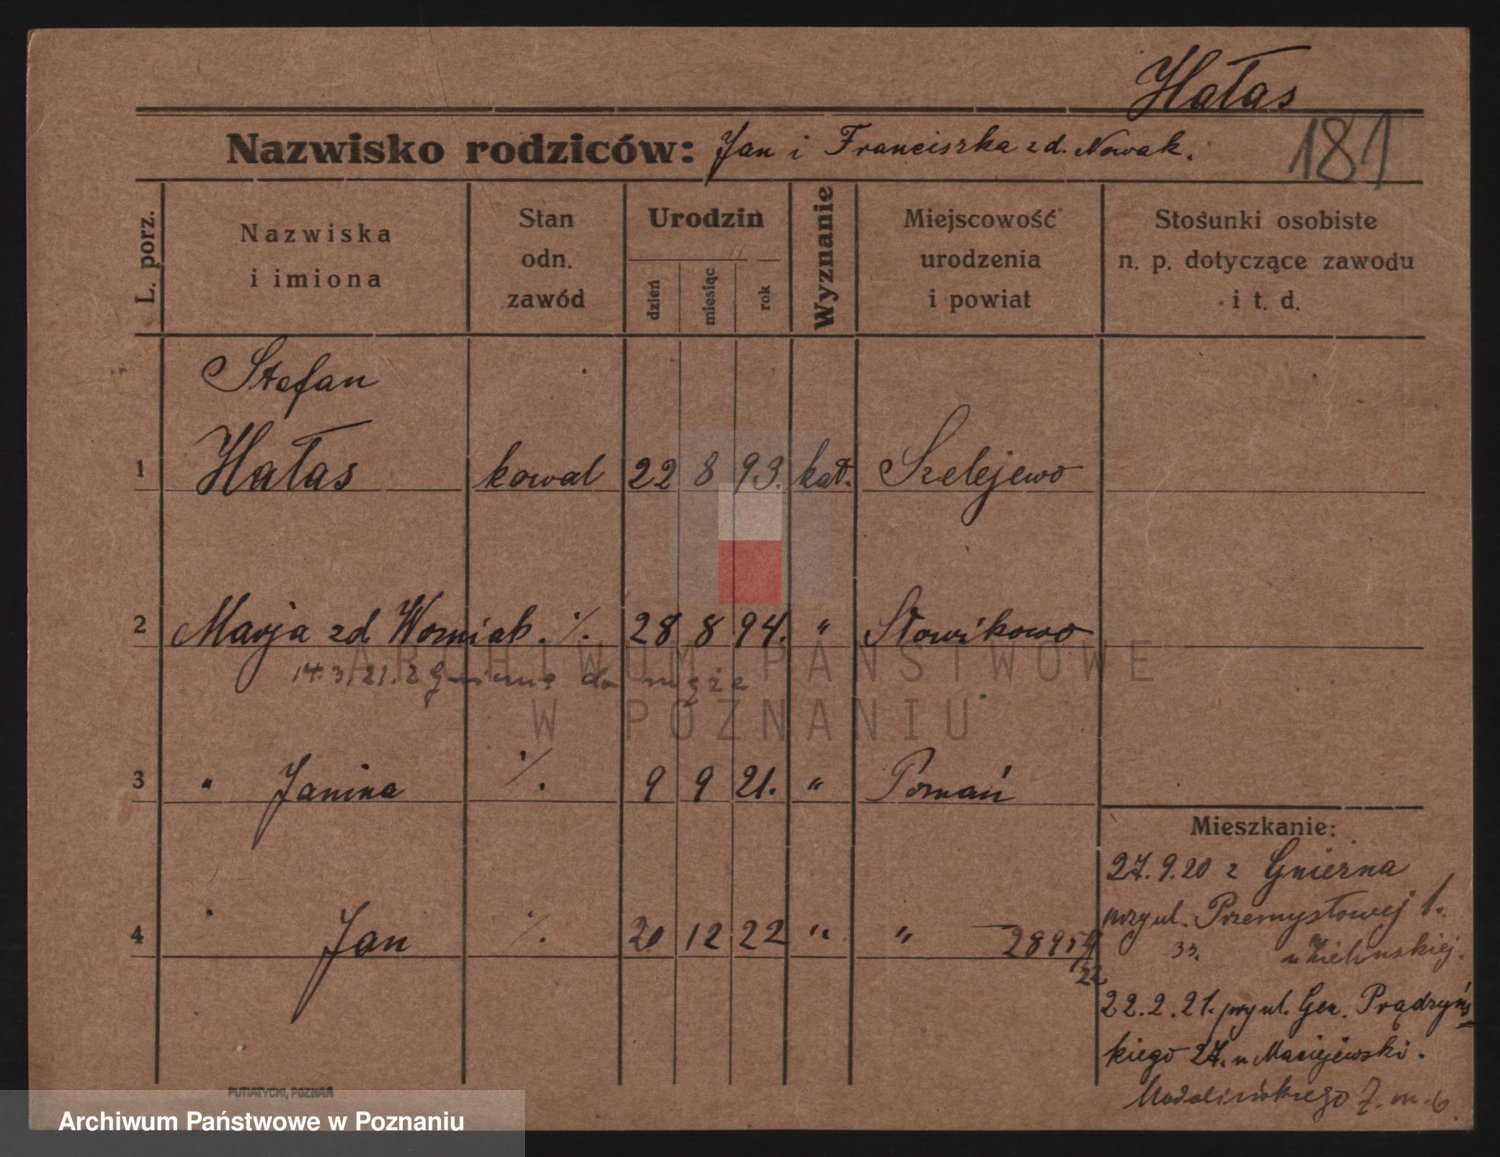 Hałas
181
Nazwisko rodziców: Jan i Franciszka zd. Nowak.
L. porz.
Nazwiska i imiona
Stan odn. zawód
Urodzin
dzień miesiąc rok
Wyznanie
Miejscowość urodzenia i powiat
Stosunki osobiste n. p. dotyczące zawodu i t. d.
Stefan
1 Hałas kowal 22 8 93. kat. Szelejewo
2 Marja zd Wozniak. ·/. 28 8 94. " Słowikowo
14.3.21. z Gniezna do męża
3 " Janina ·/. 9 9 21. " Poznań
4 " Jan ·/. 20 12 22 " "
Mieszkanie:
27.9.20 z Gniezna
przy ul. Przemysłowej
33. u Zielinskiej.
22.2.21. przy ul. Gen. Prądzyńs
kiego 27. u Maciejewski.
Madalińskiego 7. m. 6.
PUTIATYCKI, POZNAŃ
ARCHIWUM PAŃSTWOWE
W POZNANIU
Archiwum Państwowe w Poznaniu